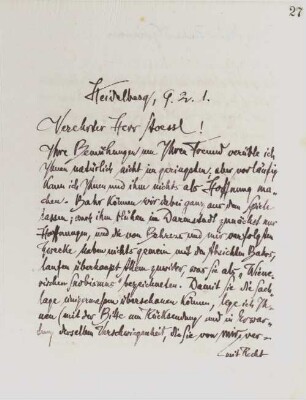 27
Heidelberg, 9. 2. 1.
Verehrter Herr Stoessl!
Ihre Bemühungen um Ihren Freund verüble ich
Ihnen natürlich nicht im geringsten, aber vorläufig
kann ich Ihnen und ihm nichts als Hoffnung ma-
chen. Bahr können wir dabei ganz aus dem Spiele
lassen; auch ihm blühen in Darmstadt zunächst nur
Hoffnungen, und die von Behrens und mir verfolgten
Zwecke haben nichts gemein mit den Absichten Bahrs,
laufen überhaupt Allem zuwider, was Sie als „Wiene-
rischen Snobismus" bezeichneten. Damit Sie die Sach-
lage einigermassen überschauen können, lege ich Ih-
nen (mit der Bitte um Rücksendung und in Erwar-
tung derselben Verschwiegenheit, die Sie von mir, ver-
mit Recht